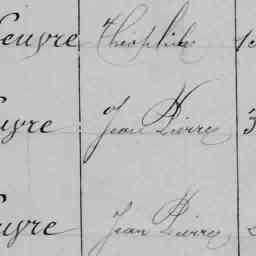 euyre Théophile
uyre Jean Pierre 3
uyre Jean Pierre